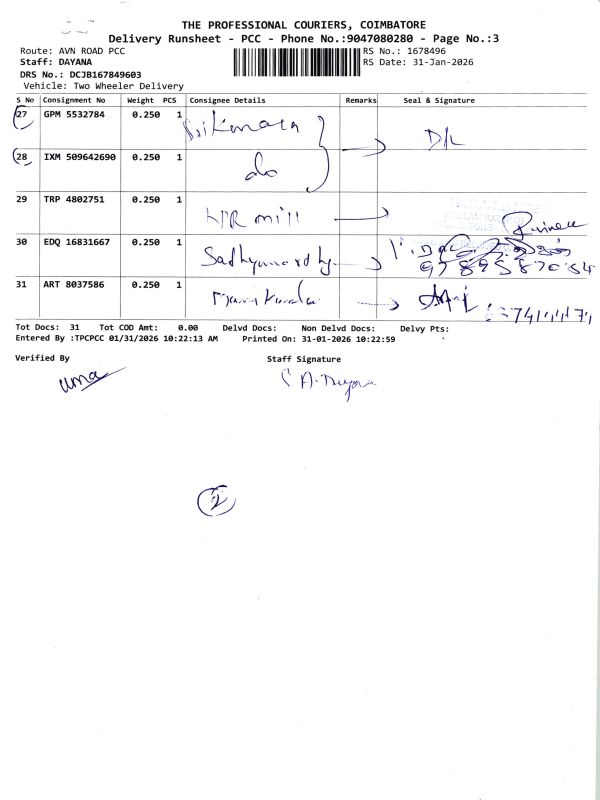 THE PROFESSIONAL COURIERS, COIMBATORE
Delivery Runsheet - PCC - Phone No.:9047080280 - Page No.:3
Route: AVN ROAD PCC RS No.: 1678496
Staff: DAYANA RS Date: 31-Jan-2026
DRS No.: DCJB167849603
Vehicle: Two Wheeler Delivery
S No Consignment No Weight PCS Consignee Details Remarks Seal & Signature
27 GPM 5532784 0.250 1 D/L
28 IXM 509642690 0.250 1 do
29 TRP 4802751 0.250 1 mill
30 EDQ 16831667 0.250 1
31 ART 8037586 0.250 1
Tot Docs: 31 Tot COD Amt: 0.00 Delvd Docs: Non Delvd Docs: Delvy Pts:
Entered By :TPCPCC 01/31/2026 10:22:13 AM Printed On: 31-01-2026 10:22:59
Verified By Staff Signature
uma A. Dayana
2